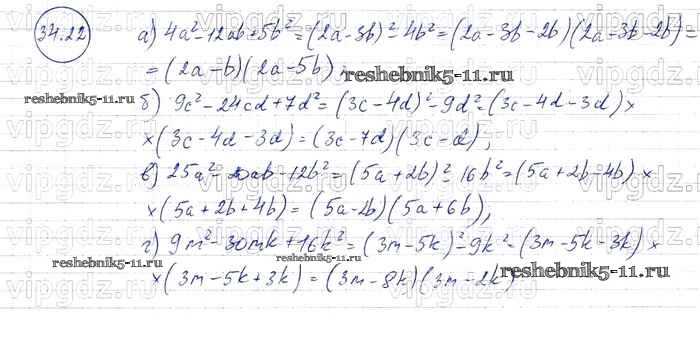 34.22
а) 4a² - 12ab + 5b² = (2a - 3b)² - 4b² = (2a - 3b - 2b)(2a - 3b - 2b) =
= (2a - b)(2a - 5b);
б) 9c² - 24cd + 7d² = (3c - 4d)² - 9d² = (3c - 4d - 3d) ×
× (3c - 4d - 3d) = (3c - 7d)(3c - d);
в) 25a² - 20ab - 12b² = (5a + 2b)² - 16b² = (5a + 2b - 4b) ×
× (5a + 2b + 4b) = (5a - 2b)(5a + 6b);
г) 9m² - 30mk + 16k² = (3m - 5k)² - 9k² = (3m - 5k - 3k) ×
× (3m - 5k + 3k) = (3m - 8k)(3m - 2k)
reshebnik5-11.ru
reshebnik5-11.ru
reshebnik5-11.ru
reshebnik5-11.ru
reshebnik5-11.ru
reshebnik5-11.ru
vipgdz.ru